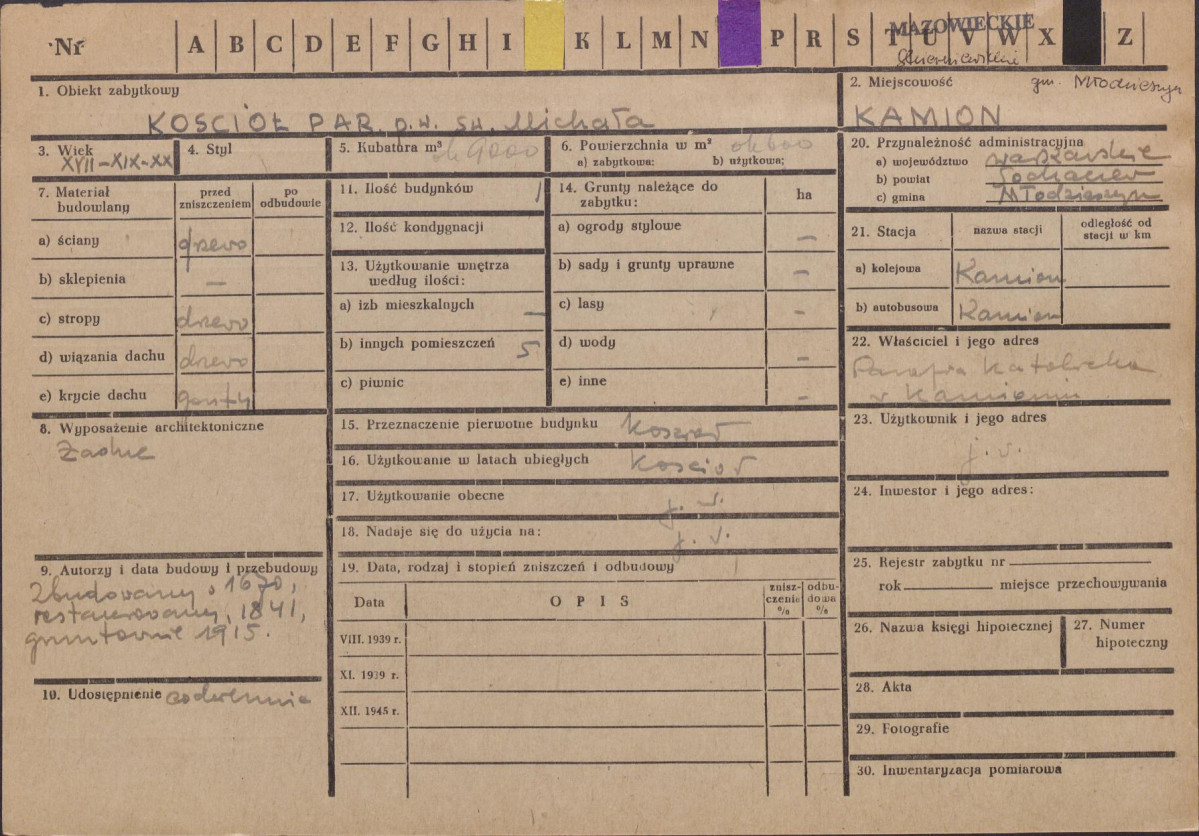 Nr A B C D E F G H I K L M N P R S T U V W X Z
MAZOWIECKIE
gm. Młodzieszyn
1. Obiekt zabytkowy
KOŚCIÓŁ PAR. p.w. św. Michała
2. Miejscowość
KAMION
3. Wiek
XVII-XIX-XX
4. Styl
5. Kubatura m³ ok 9000
6. Powierzchnia w m² ok 600
a) zabytkowa: b) użytkowa:
7. Materiał budowlany
przed zniszczeniem
po odbudowie
a) ściany drzewo
b) sklepienia –
c) stropy drzewo
d) wiązania dachu drzewo
e) krycie dachu gonty
8. Wyposażenie architektoniczne
Żadne
9. Autorzy i data budowy i przebudowy
Zbudowany 1670,
restaurowany, 1841,
gruntownie 1915.
10. Udostępnienie codziennie
11. Ilość budynków 1
12. Ilość kondygnacji
13. Użytkowanie wnętrza
według ilości:
a) izb mieszkalnych –
b) innych pomieszczeń 5
c) piwnic
14. Grunty należące do
zabytku:
ha
a) ogrody stylowe –
b) sady i grunty uprawne –
c) lasy –
d) wody –
e) inne –
15. Przeznaczenie pierwotne budynku Kościół
16. Użytkowanie w latach ubiegłych Kościół
17. Użytkowanie obecne j. w.
18. Nadaje się do użycia na: j. w.
19. Data, rodzaj i stopień zniszczeń i odbudowy
Data
OPIS
znisz-
czenia
%
odbu-
dowa
%
VIII. 1939 r.
XI. 1939 r.
XII. 1945 r.
20. Przynależność administracyjna
a) województwo warszawskie
b) powiat Sochaczew
c) gmina Młodzieszyn
21. Stacja
nazwa stacji
odległość od
stacji w km
a) kolejowa Kamion
b) autobusowa Kamion
22. Właściciel i jego adres
Parafia Katolicka
w Kamionie
23. Użytkownik i jego adres
j. w.
24. Inwestor i jego adres:
25. Rejestr zabytku nr
rok miejsce przechowywania
26. Nazwa księgi hipotecznej
27. Numer
hipoteczny
28. Akta
29. Fotografie
30. Inwentaryzacja pomiarowa